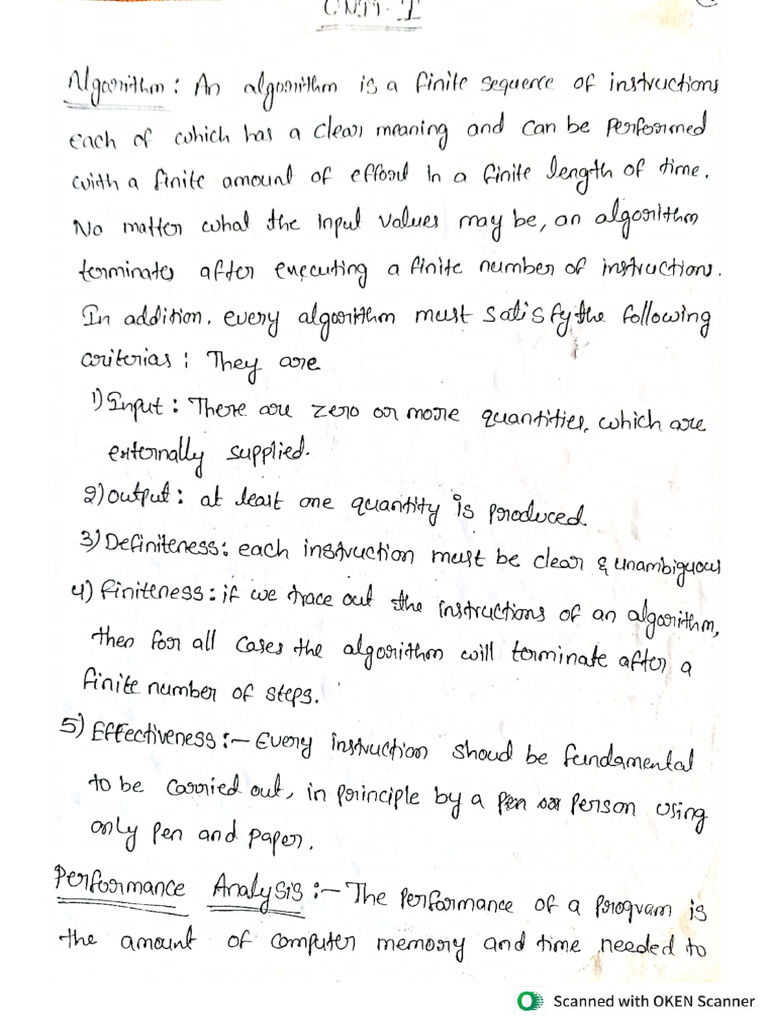 UNIT-I
Algorithm: An algorithm is a finite sequence of instructions
each of which has a clear meaning and can be performed
with a finite amount of effort in a finite length of time.
No matter what the input values may be, an algorithm
terminates after executing a finite number of instructions.
In addition, every algorithm must satisfy the following
criterias: They are
1) Input: There are zero or more quantities, which are
externally supplied.
2) output: at least one quantity is produced
3) Definiteness: each instruction must be clear & unambiguous
4) finiteness: if we trace out the instructions of an algorithm,
then for all cases the algorithm will terminate after a
finite number of steps.
5) Effectiveness:- Every instruction shoud be fundamental
to be carried out, in principle by a person using
only pen and paper.
Performance Analysis:- The performance of a program is
the amount of computer memory and time needed to
Scanned with OKEN Scanner